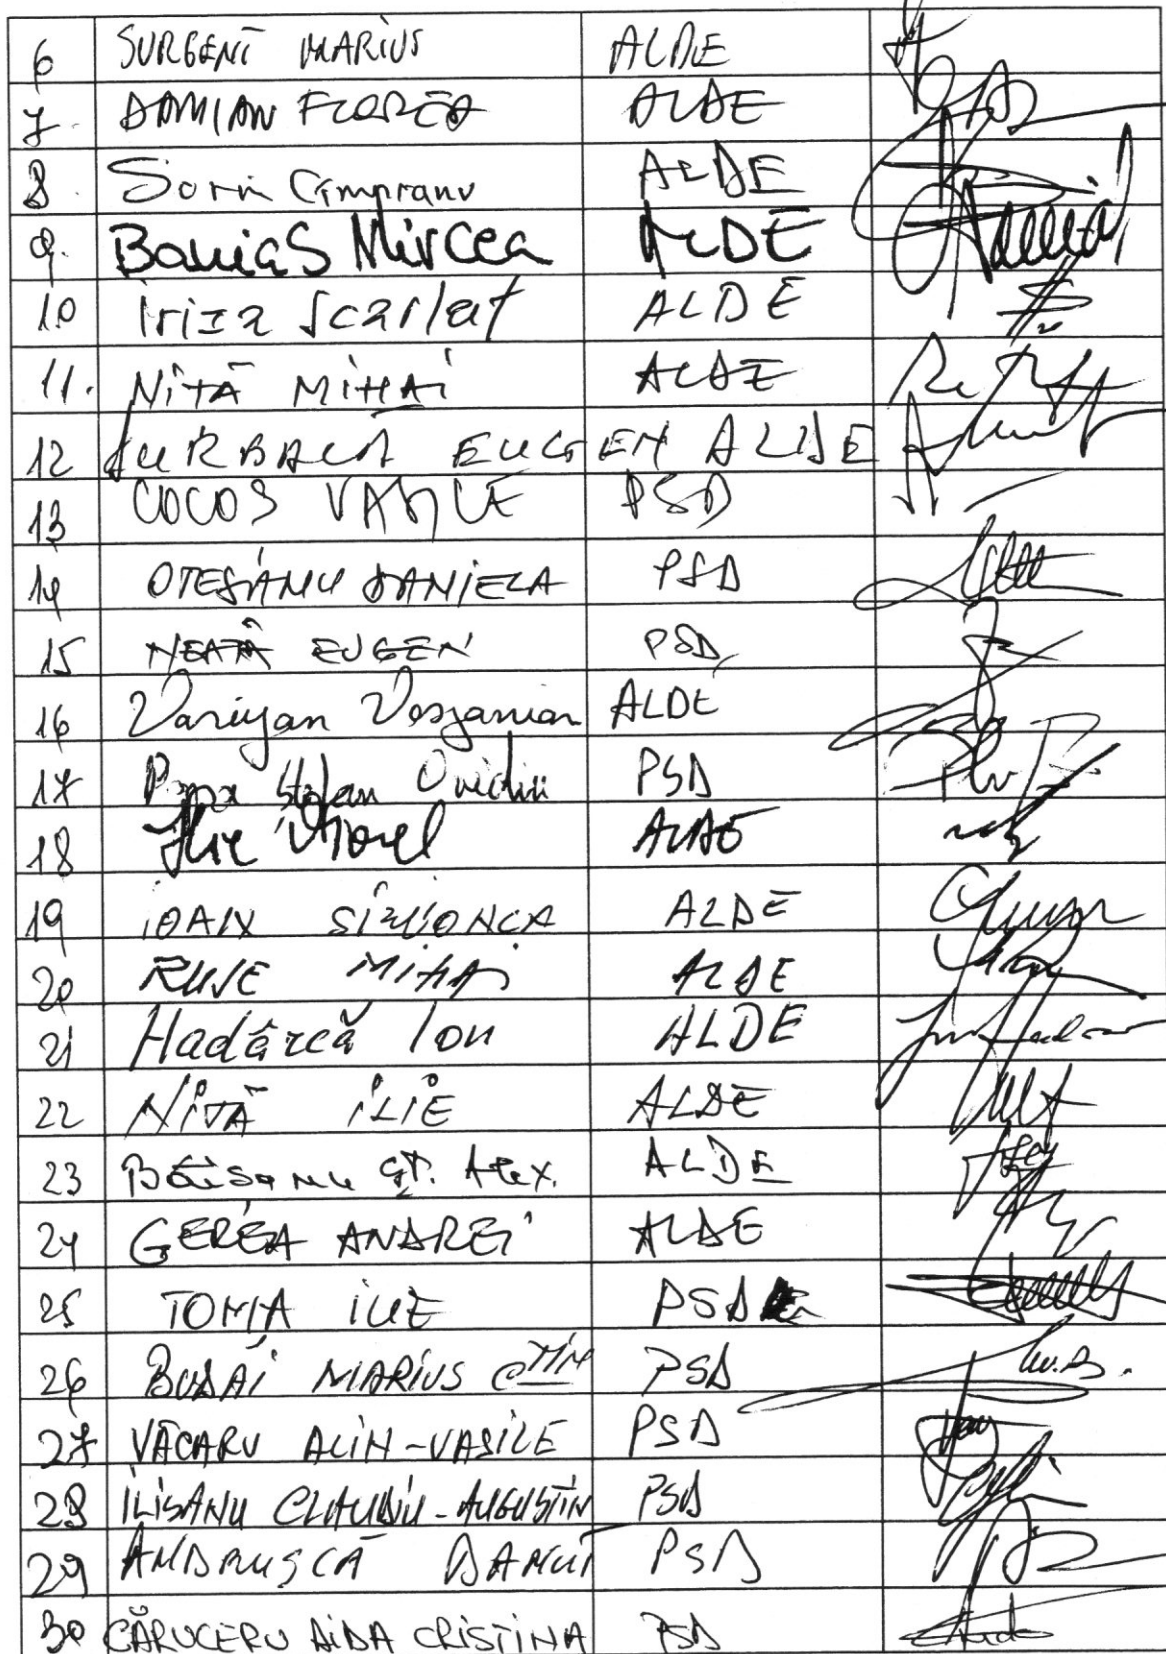 6 SURGENT MARIUS ALDE
7. DAMIAN FLOREA ALDE
8. Sorin Cîmpeanu ALDE
9. Banias Mircea ALDE
10 iriza Scarlat ALDE
11. NITĂ MIHAI ALDE
12 DURBACĂ EUGEN ALDE
13 COCOS VASILE PSD
14 OTESANU DANIELA PSD
15 NEATĂ EUGEN PSD
16 Varujan Vosganian ALDE
17 Popa Stefan Ovidiu PSD
18 Ilie Viorel ALDE
19 IOAN SIZIIONCA ALDE
20 RUSE MIHAI ALDE
21 Hadârcă Ion ALDE
22 NIȚĂ ILIE ALDE
23 Băisanu ȘT. Alex. ALDE
24 GEREA ANDREI ALDE
25 TOMA ILIE PSD
26 BUDĂI MARIUS CTIN PSD
27 VĂCARU ALIN-VASILE PSD
28 ILISANU CLAUDIU-AUGUSTIN PSD
29 ANDRUSCĂ DANUT PSD
30 CĂRUCERU AIDA CRISTINA PSD